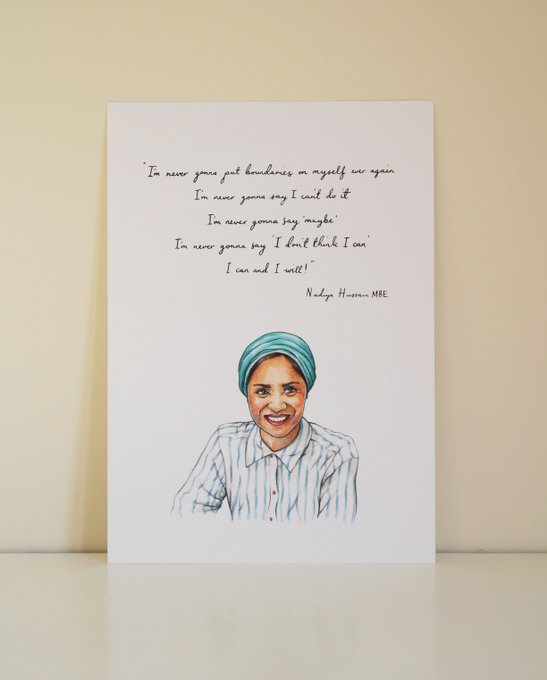 "I'm never gonna put boundaries on myself ever again
I'm never gonna say I can't do it
I'm never gonna say 'maybe'
I'm never gonna say 'I don't think I can'
I can and I will!"
Nadiya Hussain MBE